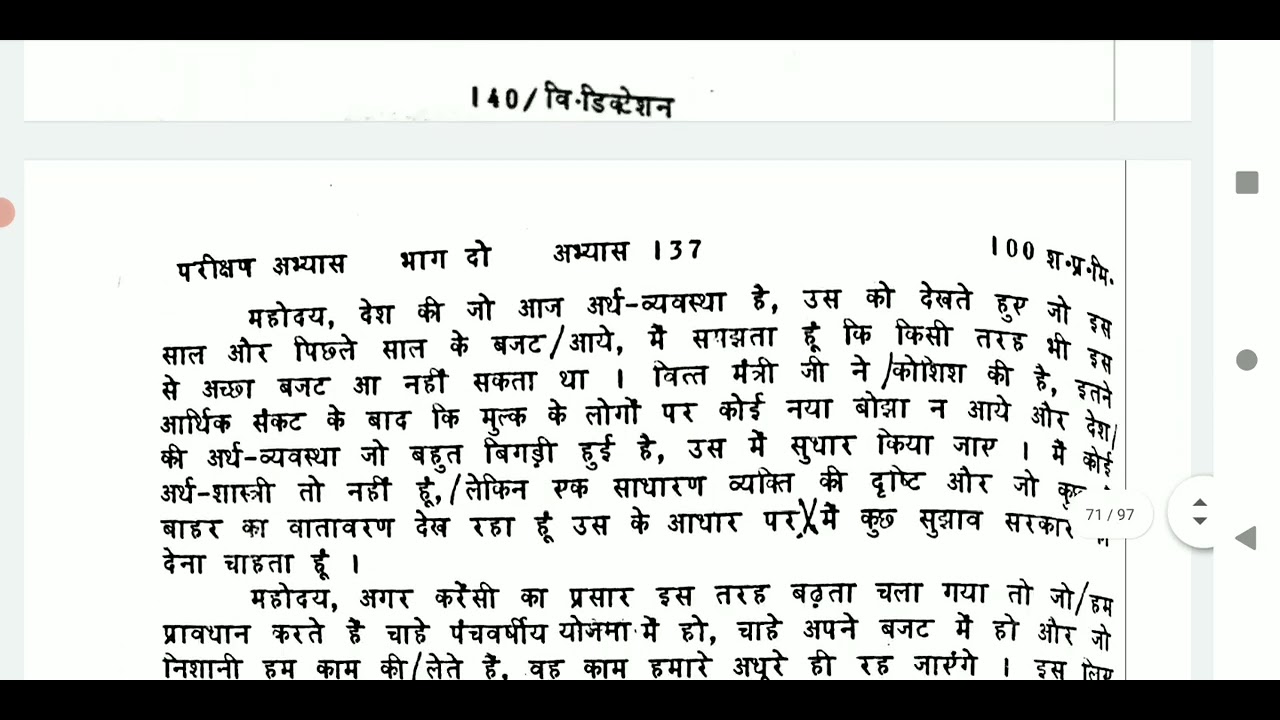 140/वि·डिक्टेशन
परीक्षण अभ्यास भाग दो अभ्यास 137 100 श·प्र·मि·
महोदय, देश की जो आज अर्थ-व्यवस्था है, उस को देखते हुए जो इस
साल और पिछले साल के बजट/आये, मैं समझता हूं कि किसी तरह भी इस
से अच्छा बजट आ नहीं सकता था । वित्त मंत्री जी ने/कोशिश की है, इतने
आर्थिक संकट के बाद कि मुल्क के लोगों पर कोई नया बोझा न आये और देश/
की अर्थ-व्यवस्था जो बहुत बिगड़ी हुई है, उस में सुधार किया जाए । मैं कोई
अर्थ-शास्त्री तो नहीं हूं,/लेकिन एक साधारण व्यक्ति की दृष्टि और जो
बाहर का वातावरण देख रहा हूं उस के आधार पर मैं कुछ सुझाव सरकार
71 / 97
देना चाहता हूं ।
महोदय, अगर करेंसी का प्रसार इस तरह बढ़ता चला गया तो जो/हम
प्रावधान करते हैं चाहे पंचवर्षीय योजना में हो, चाहे अपने बजट में हो और जो
निशानी हम काम की/लेते हैं, वह काम हमारे अधूरे ही रह जाएंगे । इस लिए